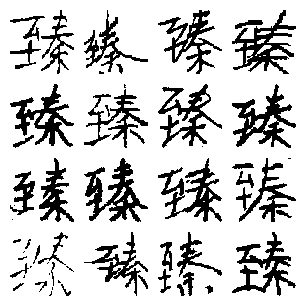 臻臻臻臻
臻臻臻臻
臻臻臻臻
臻臻臻臻